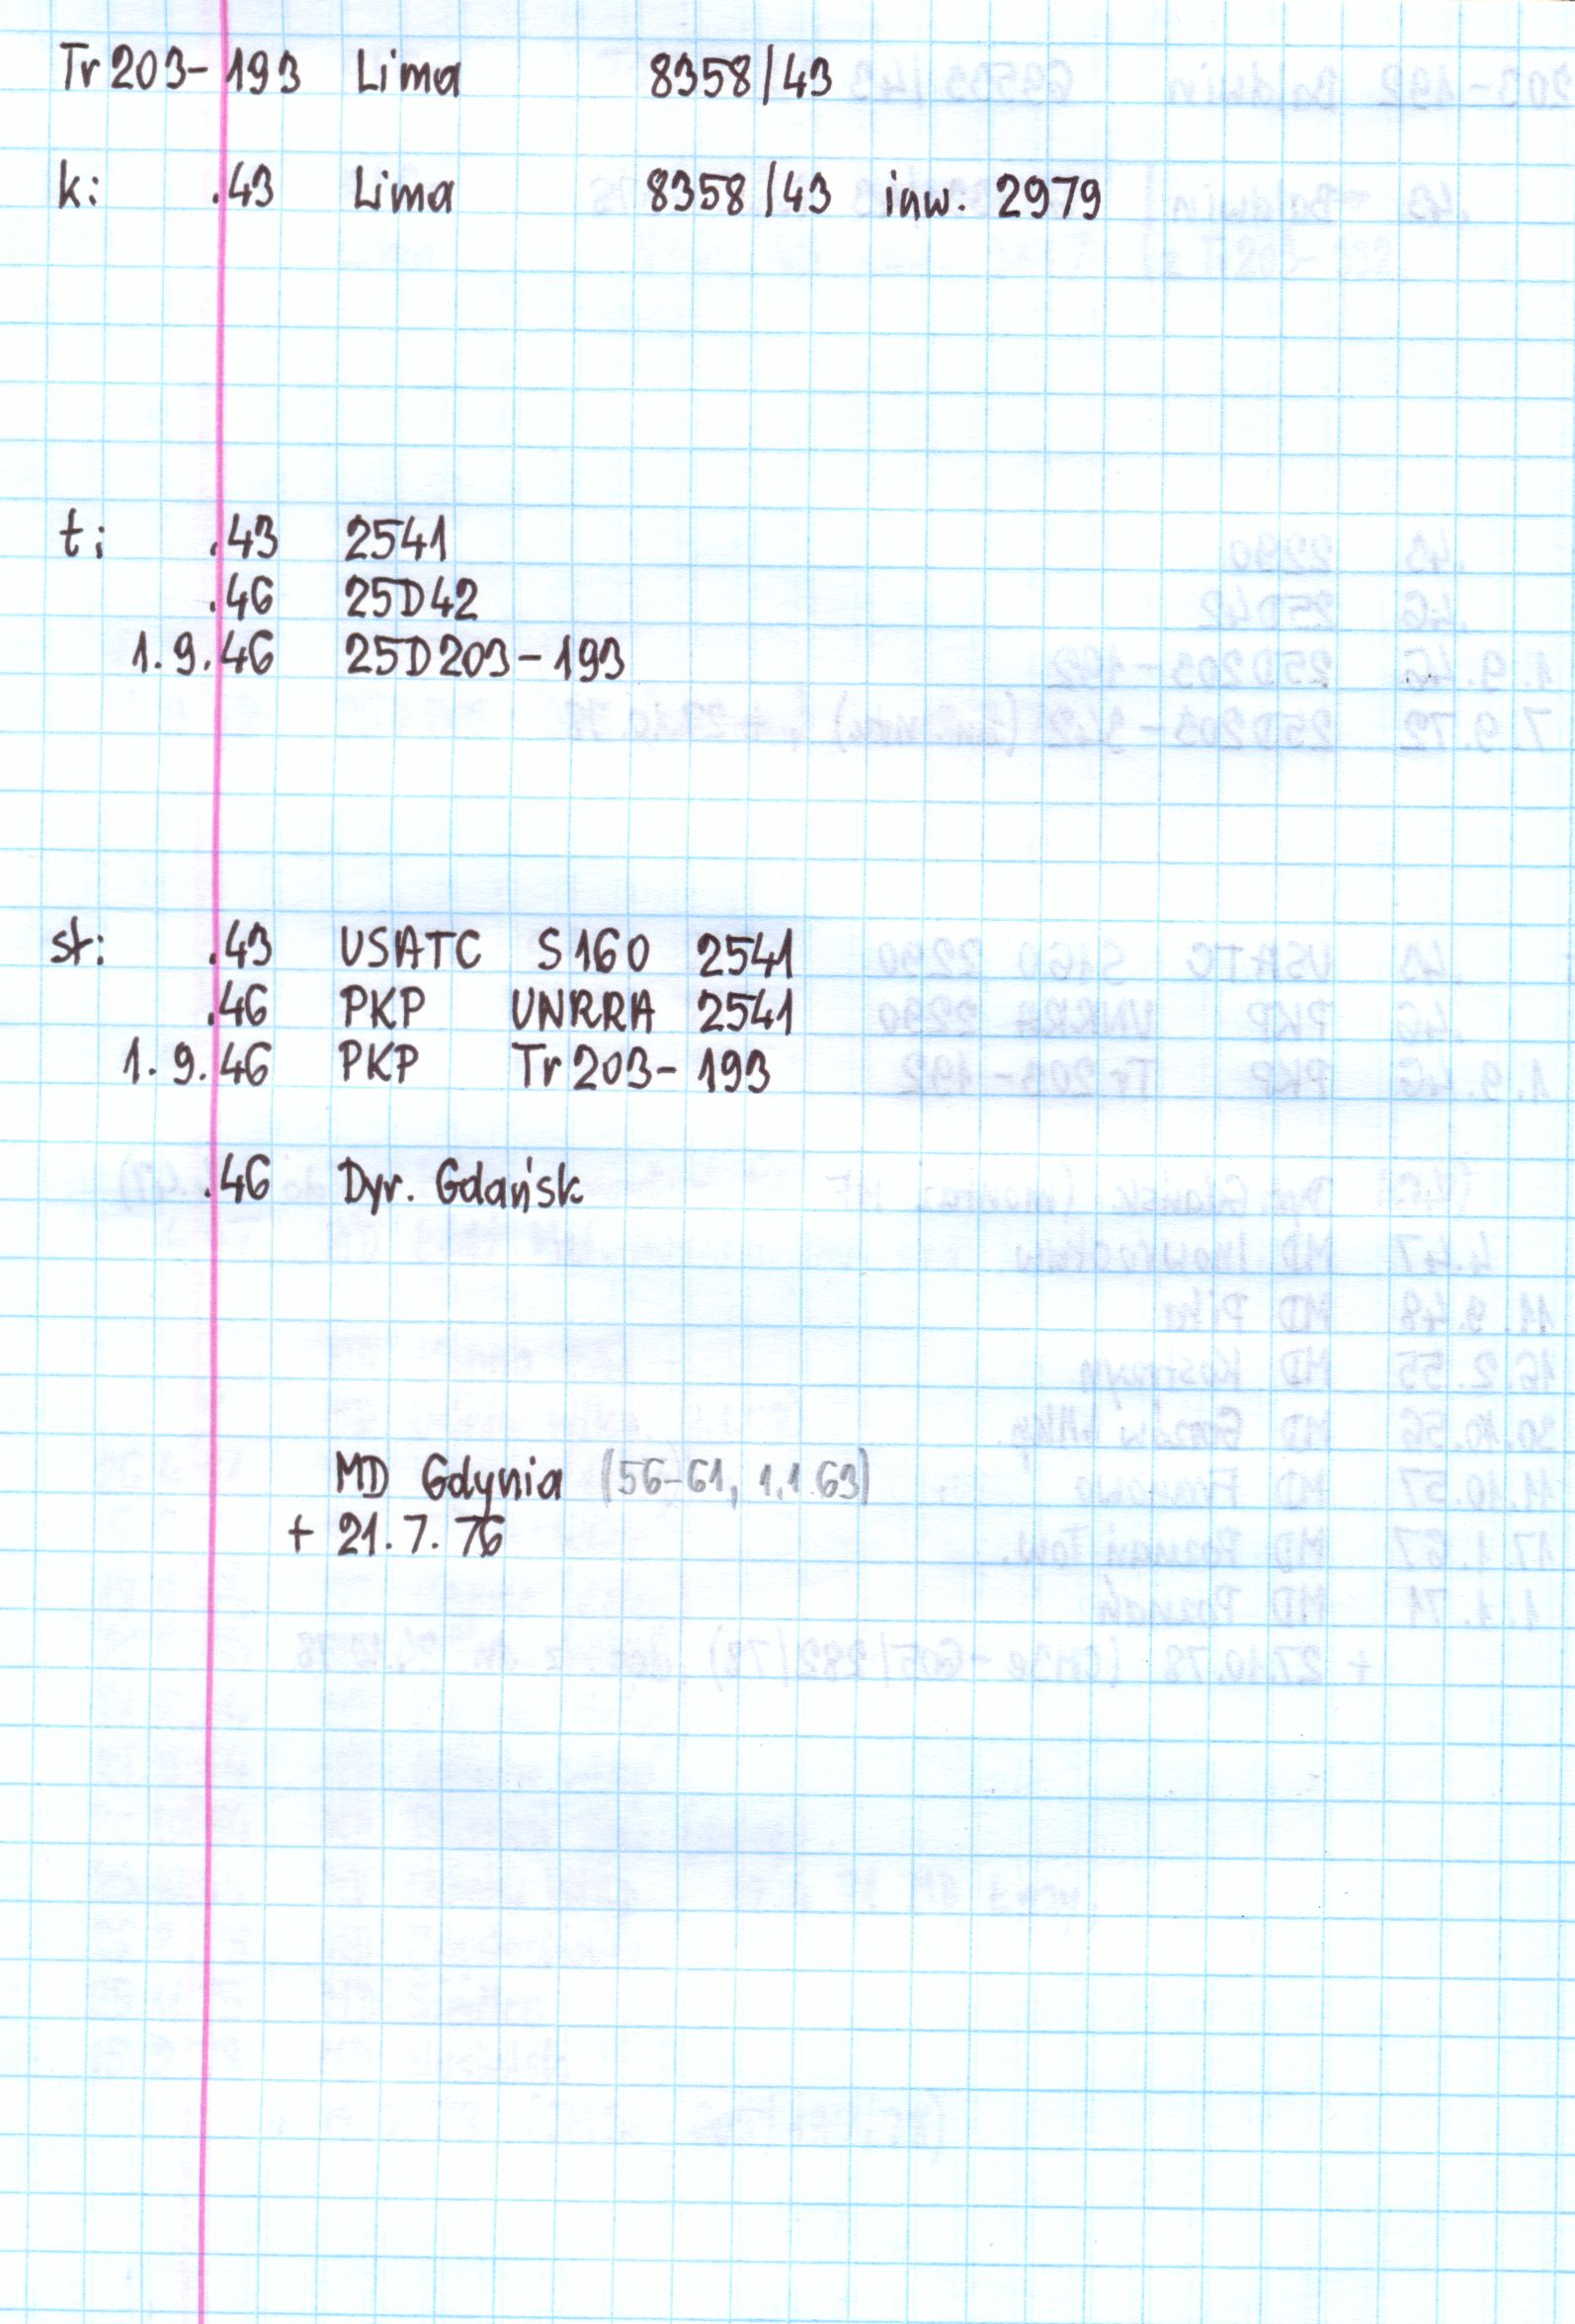 Tr 203-193 Lima 8358/43
k: .43 Lima 8358/43 inw. 2979
t: .43 2541
.46 25D42
1.9.46 25D203-193
st: .43 USATC S160 2541
.46 PKP UNRRA 2541
1.9.46 PKP Tr203-193
.46 Dyr. Gdańsk
MD Gdynia (56-61, 1.1.63)
+ 21.7.76